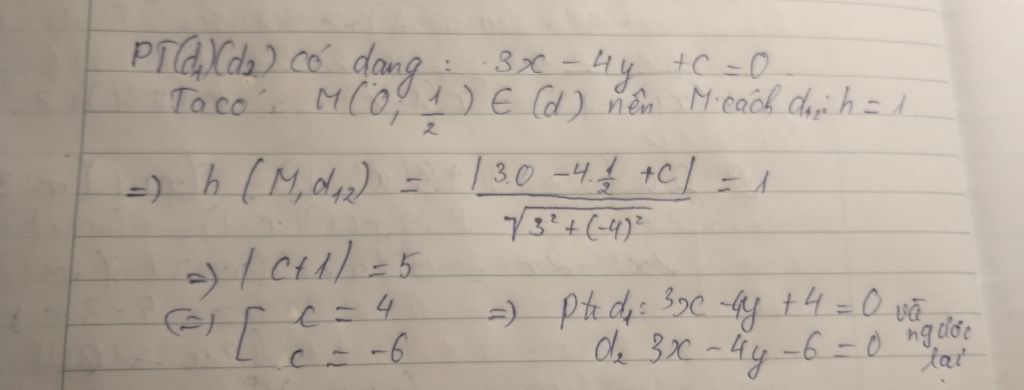 PT(d₁)(d₂) có dang : 3x - 4y + c = 0
Ta có : M(0; 1/2) ∈ (d) nên M cách d₁₂: h = 1
=) h (M, d₁₂) = |3.0 - 4.1/2 + C| / √3² + (-4)² = 1
=) |C+1| = 5
(=) [ c = 4 =) ptr d₁: 3x - 4y + 4 = 0 và
c = -6 d₂ 3x - 4y - 6 = 0 ngược lại